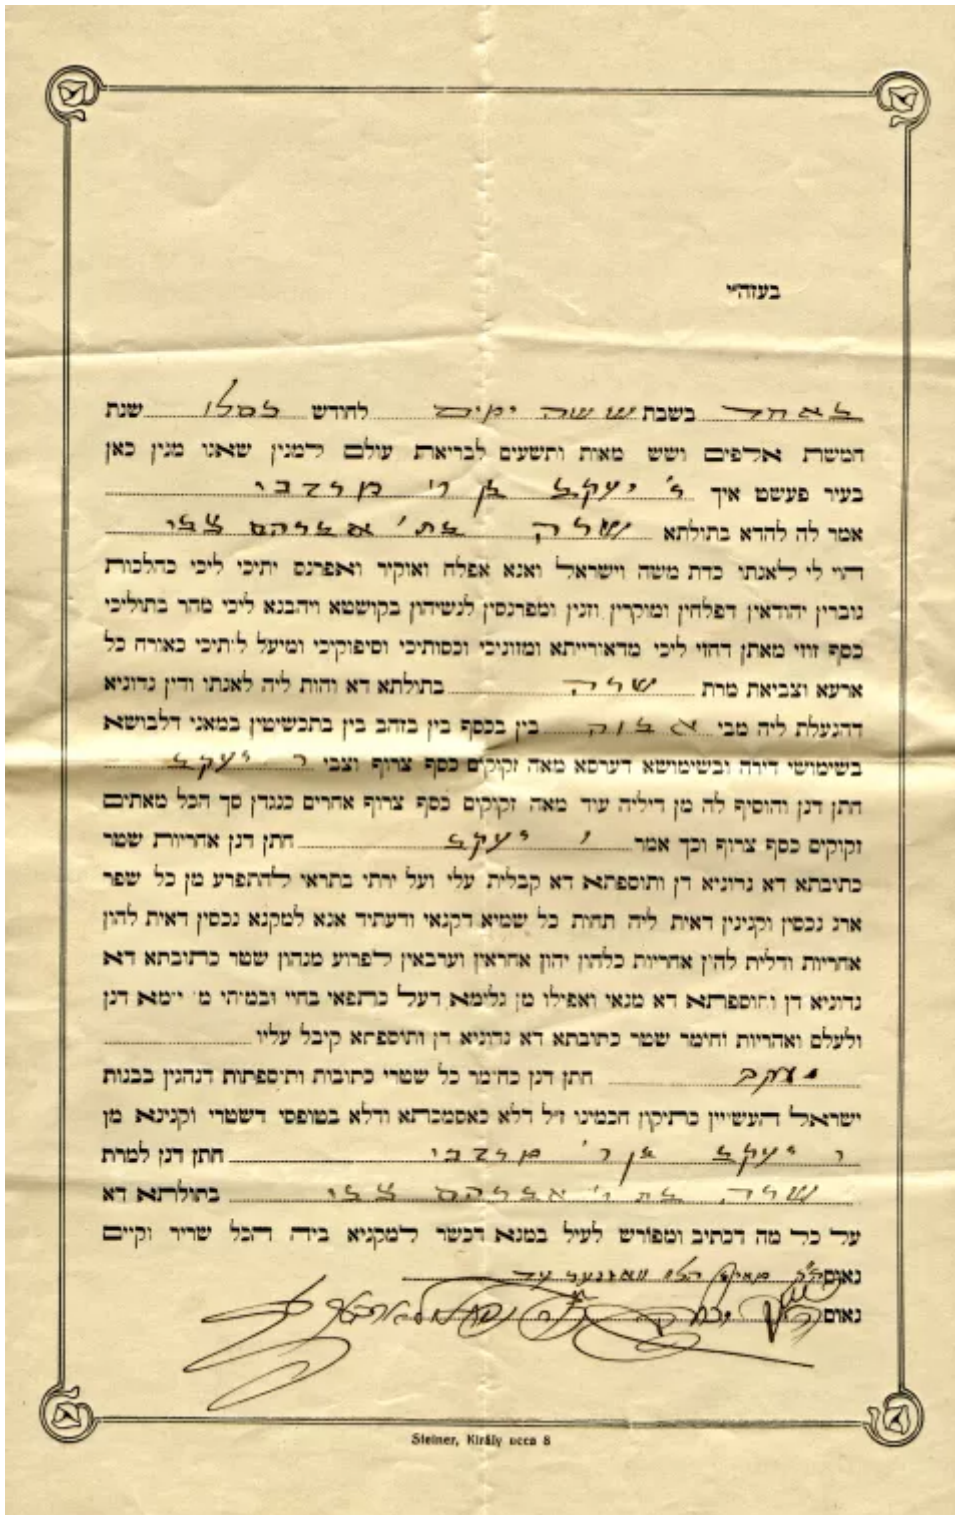 בעזה״י
באחד בשבת ששה ימים לחודש כסלו שנת
חמשת אלפים ושש מאות ותשעים לבריאת עולם למנין שאנו מנין כאן
בעיר פעשט איך ר' יעקב בן ר' מרדכי
אמר לה להדא בתולתא שרה בת ר' אברהם צבי
הוי לי לאנתו כדת משה וישראל ואנא אפלח ואוקיר ואפרנס יתיכי ליכי כהלכות
גוברין יהודאין דפלחין ומוקרין וזנין ומפרנסין לנשיהון בקושטא ויהבנא ליכי מהר בתוליכי
כסף זוזי מאתן דחזי ליכי מדאורייתא ומזוניכי וכסותיכי וסיפוקיכי ומיעל לותיכי כאורח כל
ארעא וצביאת מרת שרה בתולתא דא והות ליה לאנתו ודין נדוניא
דהנעלת ליה מבי אבוה בין בכסף בין בזהב בין בתכשיטין במאני דלבושא
בשימושי דירה ובשימושא דערסא מאה זקוקים כסף צרוף וצבי ר יעקב
חתן דנן והוסיף לה מן דיליה עוד מאה זקוקים כסף צרוף אחרים כנגדן סך הכל מאתים
זקוקים כסף צרוף וכך אמר ר יעקב חתן דנן אחריות שטר
כתובתא דא נדוניא דן ותוספתא דא קבלית עלי ועל ירתי בתראי להתפרע מן כל שפר
ארג נכסין וקנינין דאית ליה תחות כל שמיא דקנאי ודעתיד אנא למקנא נכסין דאית להון
אחריות ודלית להון אחריות כלהון יהון אחראין וערבאין לפרוע מנהון שטר כתובתא דא
נדוניא דן ותוספתא דא מנאי ואפילו מן גלימא דעל כתפאי בחיי ובמותי מן יומא דנן
ולעלם ואחריות וחומר שטר כתובתא דא נדוניא דן ותוספתא קיבל עליו
יעקב חתן דנן כחומר כל שטרי כתובות ותוספתות דנהגין בבנות
ישראל העשויין כתיקון חכמינו ז״ל דלא כאסמכתא ודלא בטופסי דשטרי וקנינא מן
ר יעקב בן ר' מרדכי חתן דנן למרת
שרה בת ר' אברהם צבי בתולתא דא
על כל מה דכתיב ומפורש לעיל במנא דכשר למקניא ביה הכל שריר וקיים
נאום הלוי עד
נאום
Steiner, Király ucca 8